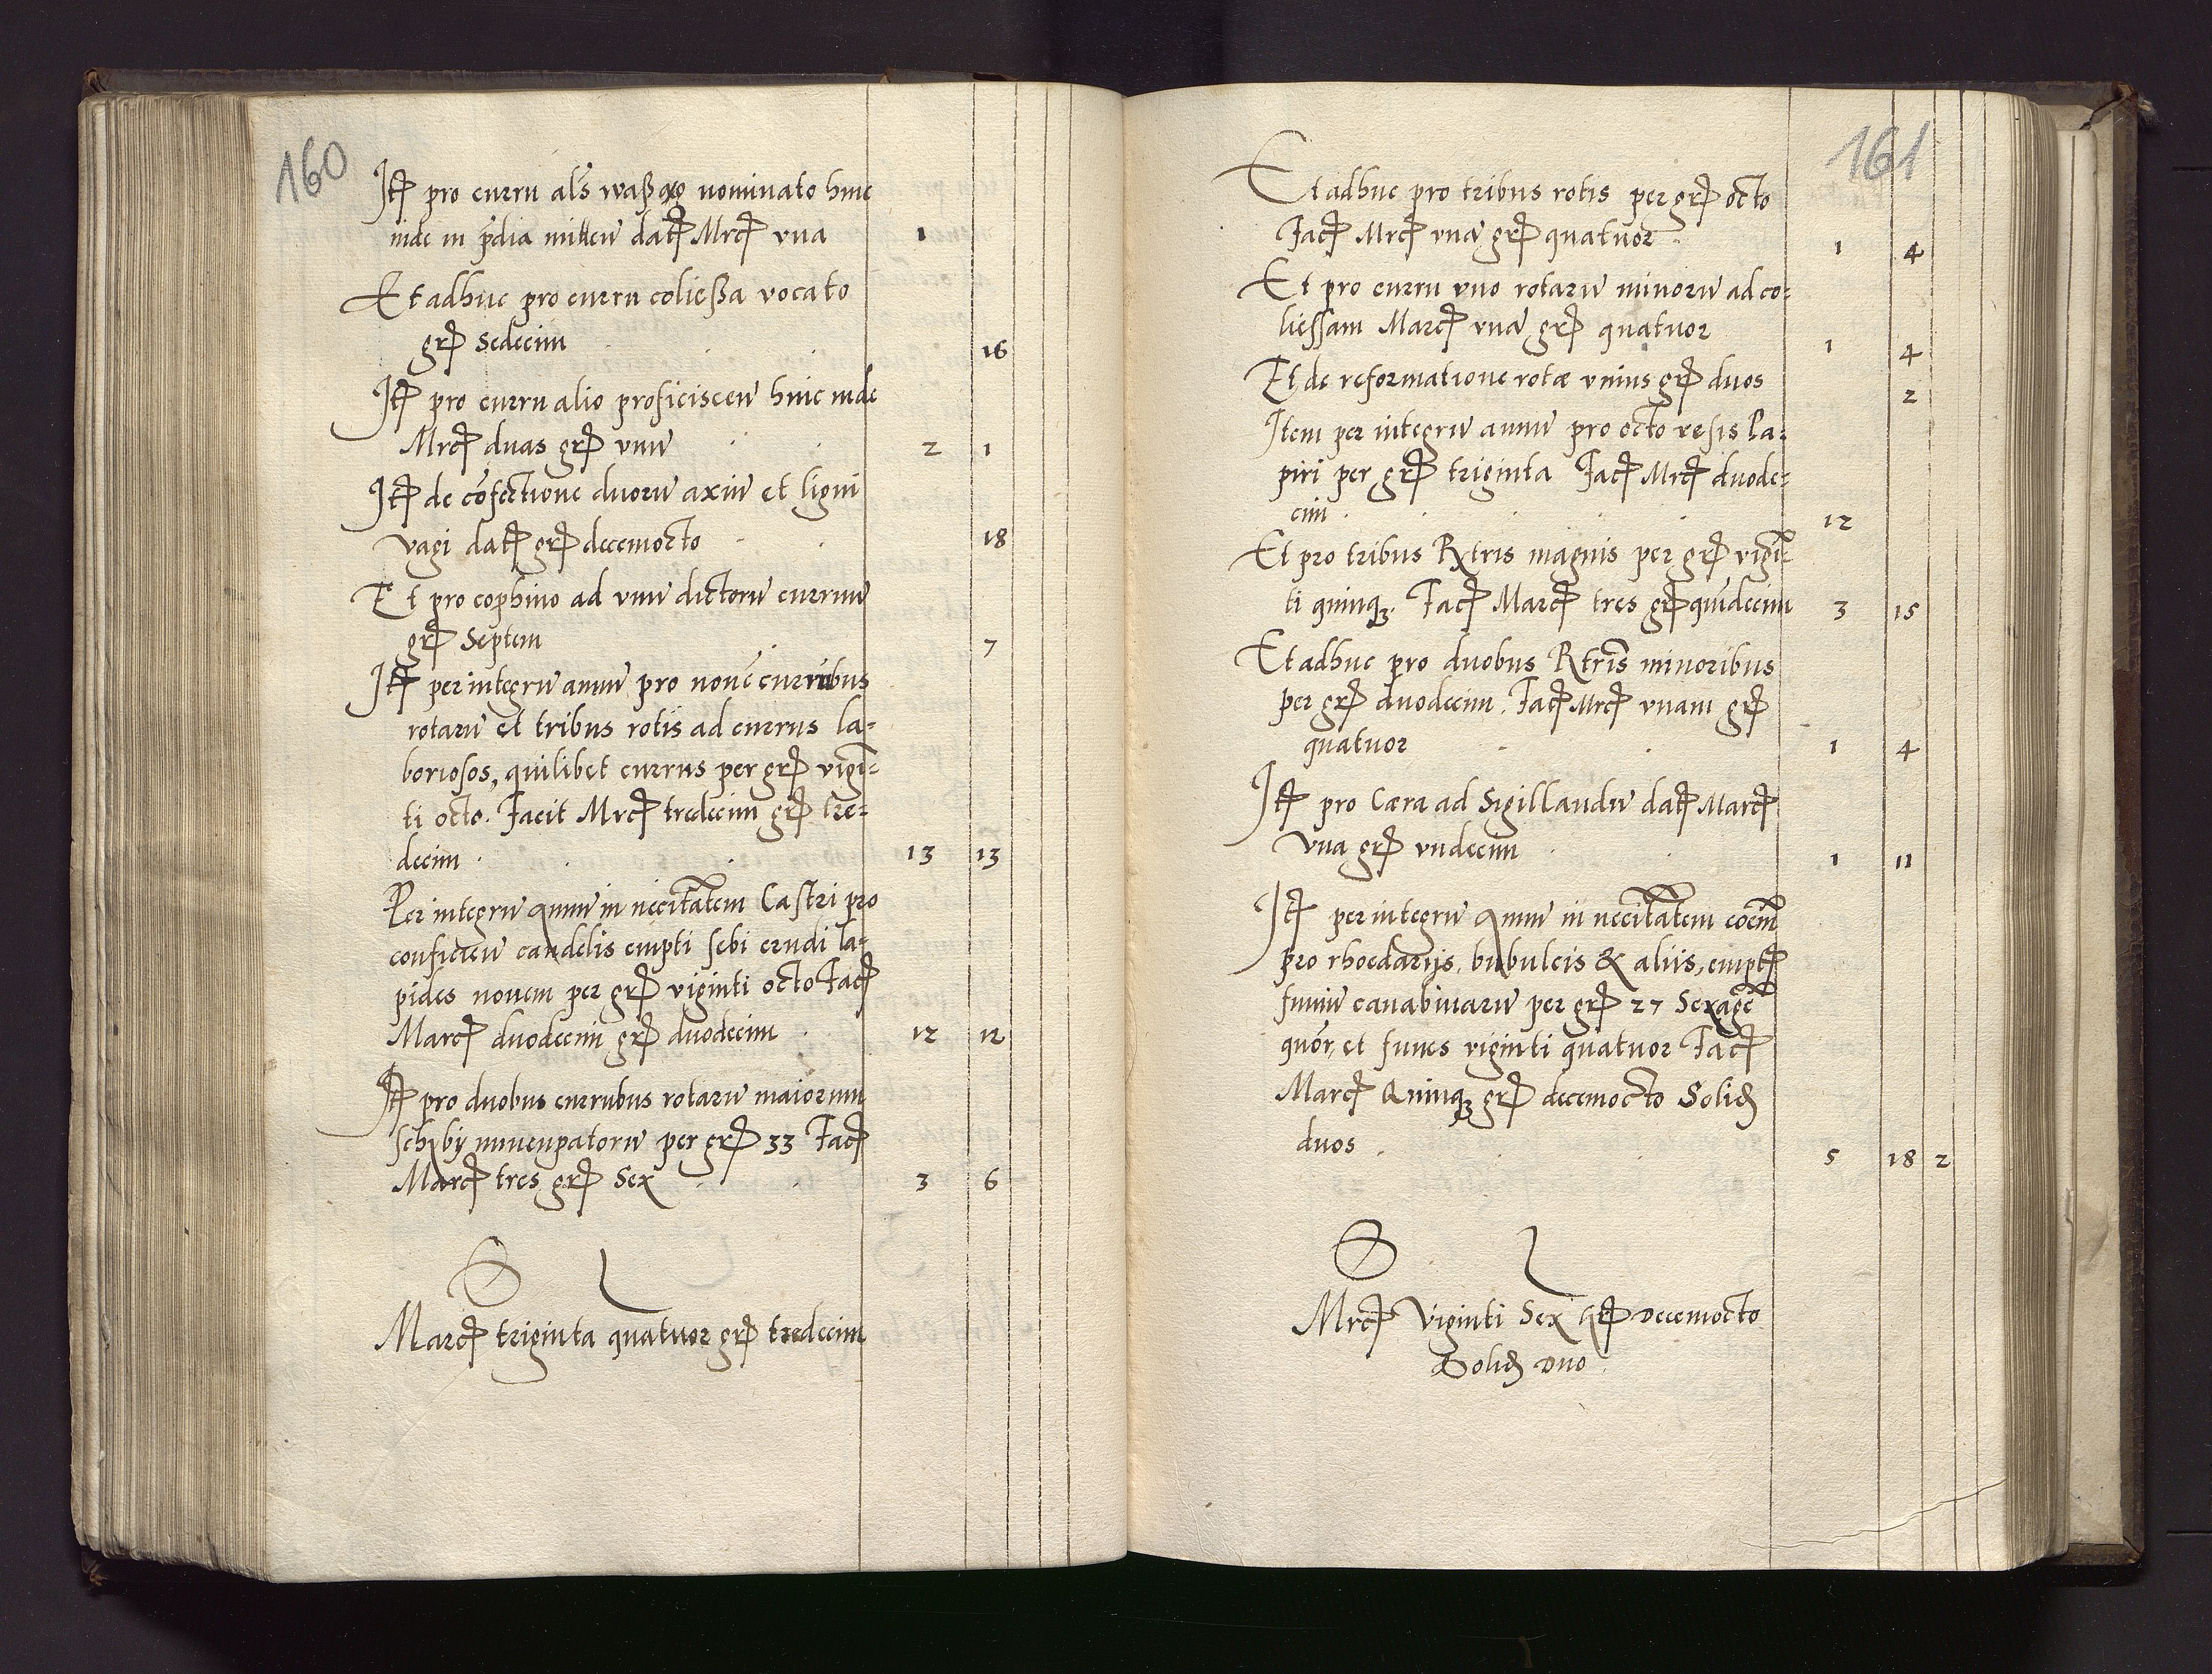 160
Itē pro curru al's waßąg nominato hinc
inde in p̄dia mitten̄ datē Mrcē vna 1
Et adhuc pro curru coließa vocato
grē Sedecim 16
Itē pro curru alio proficiscen̄ hinc inde
Mrcē duas grē vnū 2 1
Itē de cōfectione duorū axiū et ligni
vagi datē grē decemocto 18
Et pro cophino ad vnū dictorū curruū
grē Septem 7
Itē per integrū annū pro nouē curribus
rotarū et tribus rotis ad currus la=
boriosos, quilibet currus per grē vigī=
ti octo. Facit Mrcē tredecim grē tre=
decim 13 13
Per integrū annū in necītatem Castri pro
conficien̄ candelis empti sebi crudi la=
pides nouem per grē viginti octo Facē
Marcē duodecim grē duodecim 12 12
Itē pro duobus curribus rotarū maiorum
schyby nuncupatorū per grē 33 Facē
Marcē tres grē Sex 3 6
Marcē triginta quatuor grē tredecim
161
Et adhuc pro tribus rotis per grē octo
Facē Mrcē vnā grē quatuor 1 4
Et pro curru vno rotarū minorū ad co=
liessam Marcē vnā grē quatuor 1 4
Et de reformatione rotæ vnius grē duos 2
Item per integrū annū pro octo resis Pa=
piri per grē triginta Facē Mrcē duode=
cim 12
Et pro tribus Rxtris magnis per grē vigī=
ti quinq; Facē Marcē tres grē quīdecim 3 15
Et adhuc pro duobus Rtrīs minoribus
per grē duodecim. Facē Mrcē vnam grē
quatuor 1 4
Itē pro Cæra ad Sigillandū datē Marcē
Vna grē vndecim 1 11
Itē per integrū annū in necītatem cōēm
pro rhoedarijs, bubulcis & aliis, emptē
funiū canabinarū per grē 27 Sexagē
quōr, et funes viginti quatuor Facē
Marcē Quinq; grē decemocto Solid
duos 5 18 2
Mrcē Viginti Sex grē Decemocto
Solid Duo